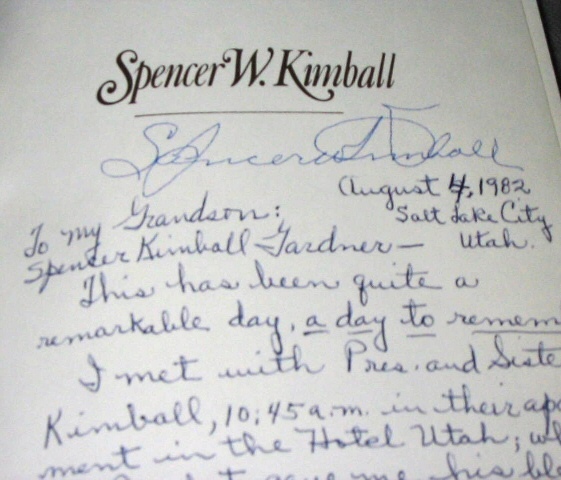 Spencer W. Kimball
Spencer W. Kimball
August 4, 1982
Salt Lake City
Utah.
To my Grandson:
Spencer Kimball Gardner—
This has been quite a
remarkable day, a day to remem
I met with Pres. and Siste
Kimball, 10:45 a.m. in their apa
ment in the Hotel Utah; wh
gave me his bl